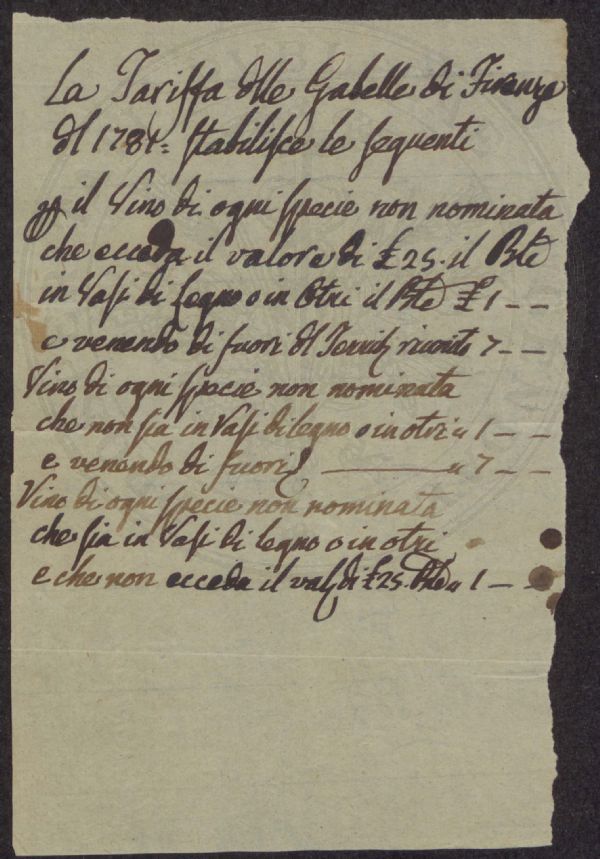 La Tariffa dlle Gabelle di Firenze
dl 1781= stabilisce le seguenti
p il Vino di ogni specie non nominata
che ecceda il valore di £ 25. il Ble
in Vasi di legno o in Otri il Ble £ 1 – –
e venendo di fuori dl Territ riunito 7 – –
Vino di ogni specie non nominata
che non sia in Vasi di legno o in otri " 1 – –
e venendo di fuori " 7 – –
Vino di ogni specie non nominata
che sia in Vasi di legno o in otri
e che non ecceda il val di £ 25. Ble " 1 – –